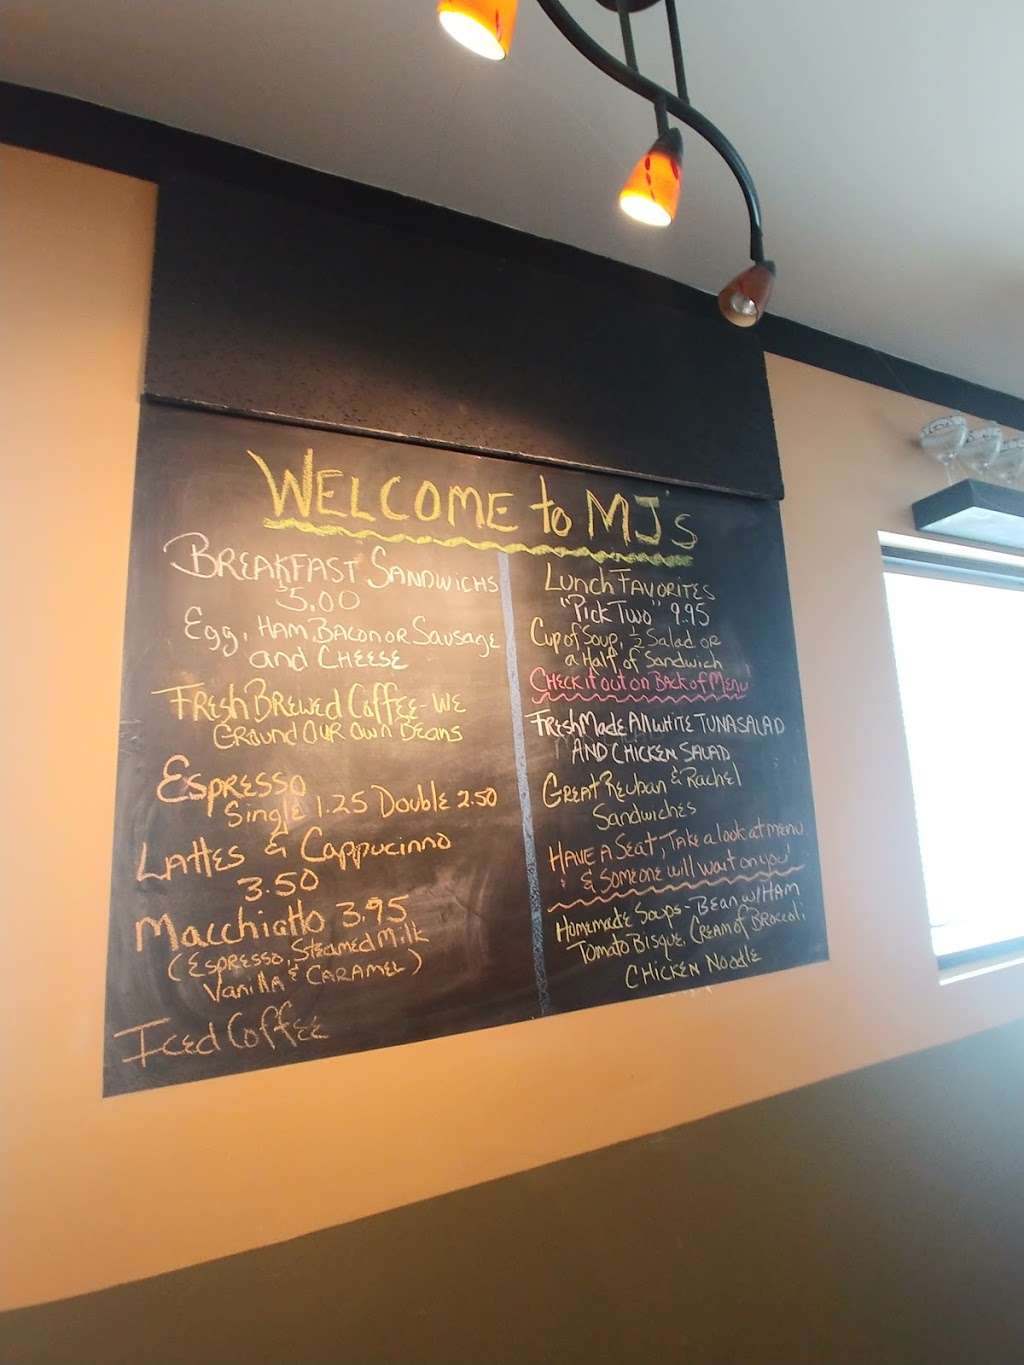 WELCOME to MJ's
BREAKFAST SANDWICHS
$5.00
Egg, HAM, BACON OR SAUSAGE
and CHEESE
FRESH BREWED COFFEE - WE
GROUND OUR OWN BEANS
ESPRESSO
Single 1.25 Double 2.50
LAttES & CAPPUCINNO
3.50
Macchiatto 3.95
(ESPRESSO, STEAMED MILK
VANILLA & CARAMEL)
ICED COFFEE
LUNCH FAVORITES
"PICK TWO" 9.95
Cup of Soup, 1/2 Salad or
a Half of Sandwich
CHECK it out on BACK of MENU
FRESH MADE All WHITE TUNA SALAD
AND CHICKEN SALAD
GREAT REUBAN & RACHEL
SANDWICHES
HAVE A SEAT, TAKE a look at menu
& SOMEONE will wait on you!
HOMEMADE SOUPS - BEAN W/ HAM
TOMATO BISQUE, CREAM of BROCCOLI
CHICKEN NOODLE